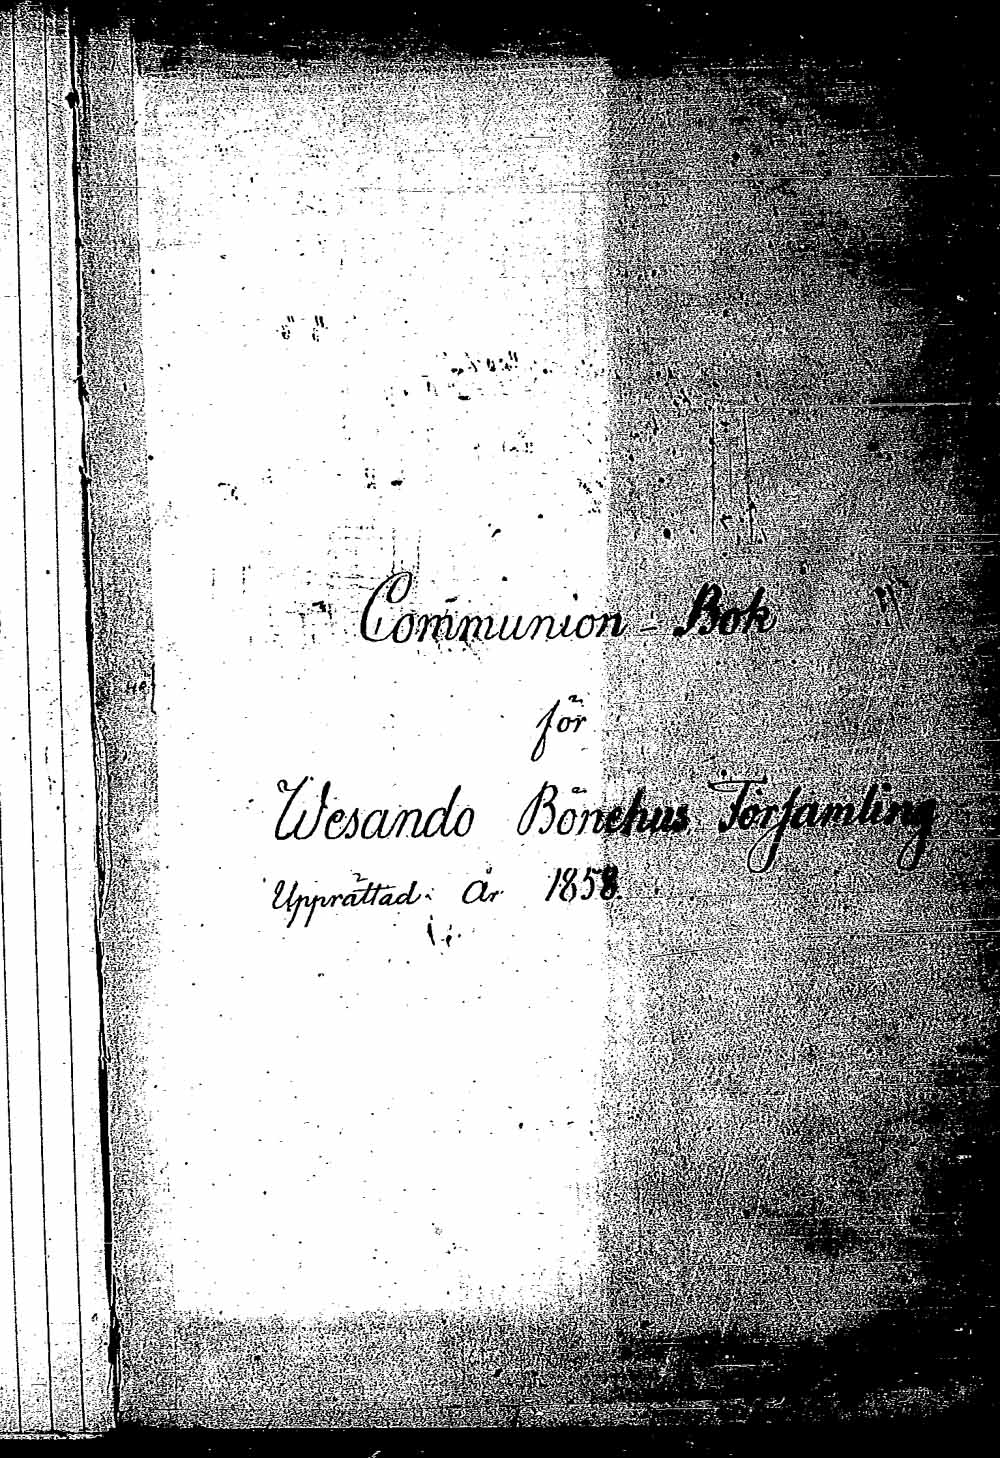 Communion - Bok
för
Wesando Bönehus Församling
Upprättad År 1858.